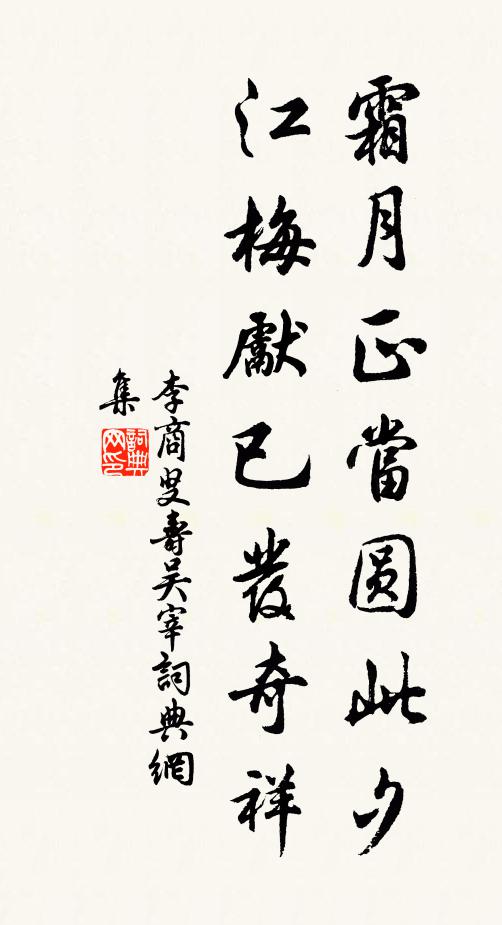 霜月正當圆此夕
江梅獻已發奇祥
李商叟壽吴宰詞典網
集
詞典
网印